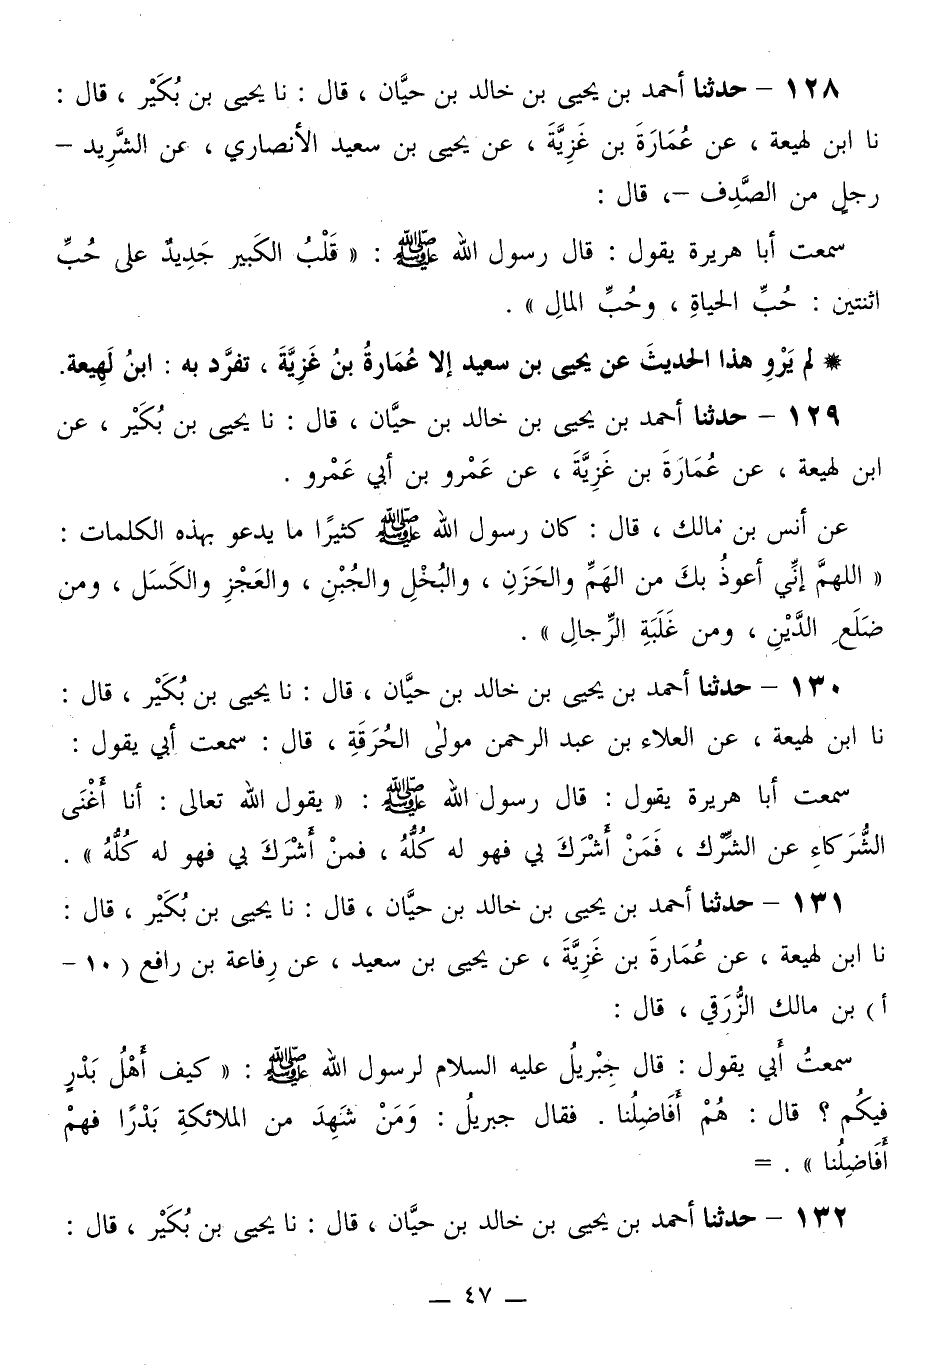 ١٢٨ – حدثنا أحمد بن يحيى بن خالد بن حيَّان ، قال : نا يحيى بن بُكَيْر ، قال :
نا ابن لهيعة ، عن عُمَارَةَ بن غَزِيَّةَ ، عن يحيى بن سعيد الأنصاري ، عن الشَّرِيد –
رجلٍ من الصَّدِف –، قال :
سمعت أبا هريرة يقول : قال رسول الله ﷺ : « قَلْبُ الكَبير جَدِيدٌ على حُبِّ
اثنتين : حُبِّ الحياةِ ، وحُبِّ المالِ » .
* لم يَرْوِ هذا الحديثَ عن يحيى بن سعيد إلا عُمَارةُ بنُ غَزِيَّةَ ، تفرَّد به : ابنُ لَهِيعة.
١٢٩ – حدثنا أحمد بن يحيى بن خالد بن حيَّان ، قال : نا يحيى بن بُكَيْر ، عن
ابن لهيعة ، عن عُمَارَةَ بن غَزِيَّةَ ، عن عَمْرو بن أبي عَمْرو .
عن أنس بن مالك ، قال : كان رسول الله ﷺ كثيرًا ما يدعو بهذه الكلمات :
« اللهمَّ إنِّي أعوذُ بكَ من الهَمِّ والحَزَنِ ، والبُخْلِ والجُبْنِ ، والعَجْزِ والكَسَل ، ومن
ضَلَعِ الدَّيْنِ ، ومن غَلَبَةِ الرِّجالِ » .
١٣٠ – حدثنا أحمد بن يحيى بن خالد بن حيَّان ، قال : نا يحيى بن بُكَيْر ، قال :
نا ابن لهيعة ، عن العلاء بن عبد الرحمن مولىٰ الحُرَقَةِ ، قال : سمعت أبي يقول :
سمعت أبا هريرة يقول : قال رسول الله ﷺ : « يقول الله تعالى : أنا أَغْنَى
الشُّرَكاءِ عن الشِّرْك ، فَمَنْ أَشْرَكَ بي فهو له كُلُّهُ ، فمنْ أَشْرَكَ بي فهو له كُلُّهُ » .
١٣١ – حدثنا أحمد بن يحيى بن خالد بن حيَّان ، قال : نا يحيى بن بُكَيْر ، قال :
نا ابن لهيعة ، عن عُمَارةَ بن غَزِيَّةَ ، عن يحيى بن سعيد ، عن رِفاعة بن رافع (١٠ –
أ) بن مالك الزُّرَقي ، قال :
سمعتُ أَبي يقول : قال جِبْريلُ عليه السلام لرسول الله ﷺ : « كيف أَهْلُ بَدْرٍ
فيكُم ؟ قال : هُمْ أَفَاضِلُنا . فقال جبريلُ : وَمَنْ شَهِدَ من الملائكةِ بَدْرًا فهمْ
أَفَاضِلُنا » . =
١٣٢ – حدثنا أحمد بن يحيى بن خالد بن حيَّان ، قال : نا يحيى بن بُكَيْر ، قال :
— ٤٧ —